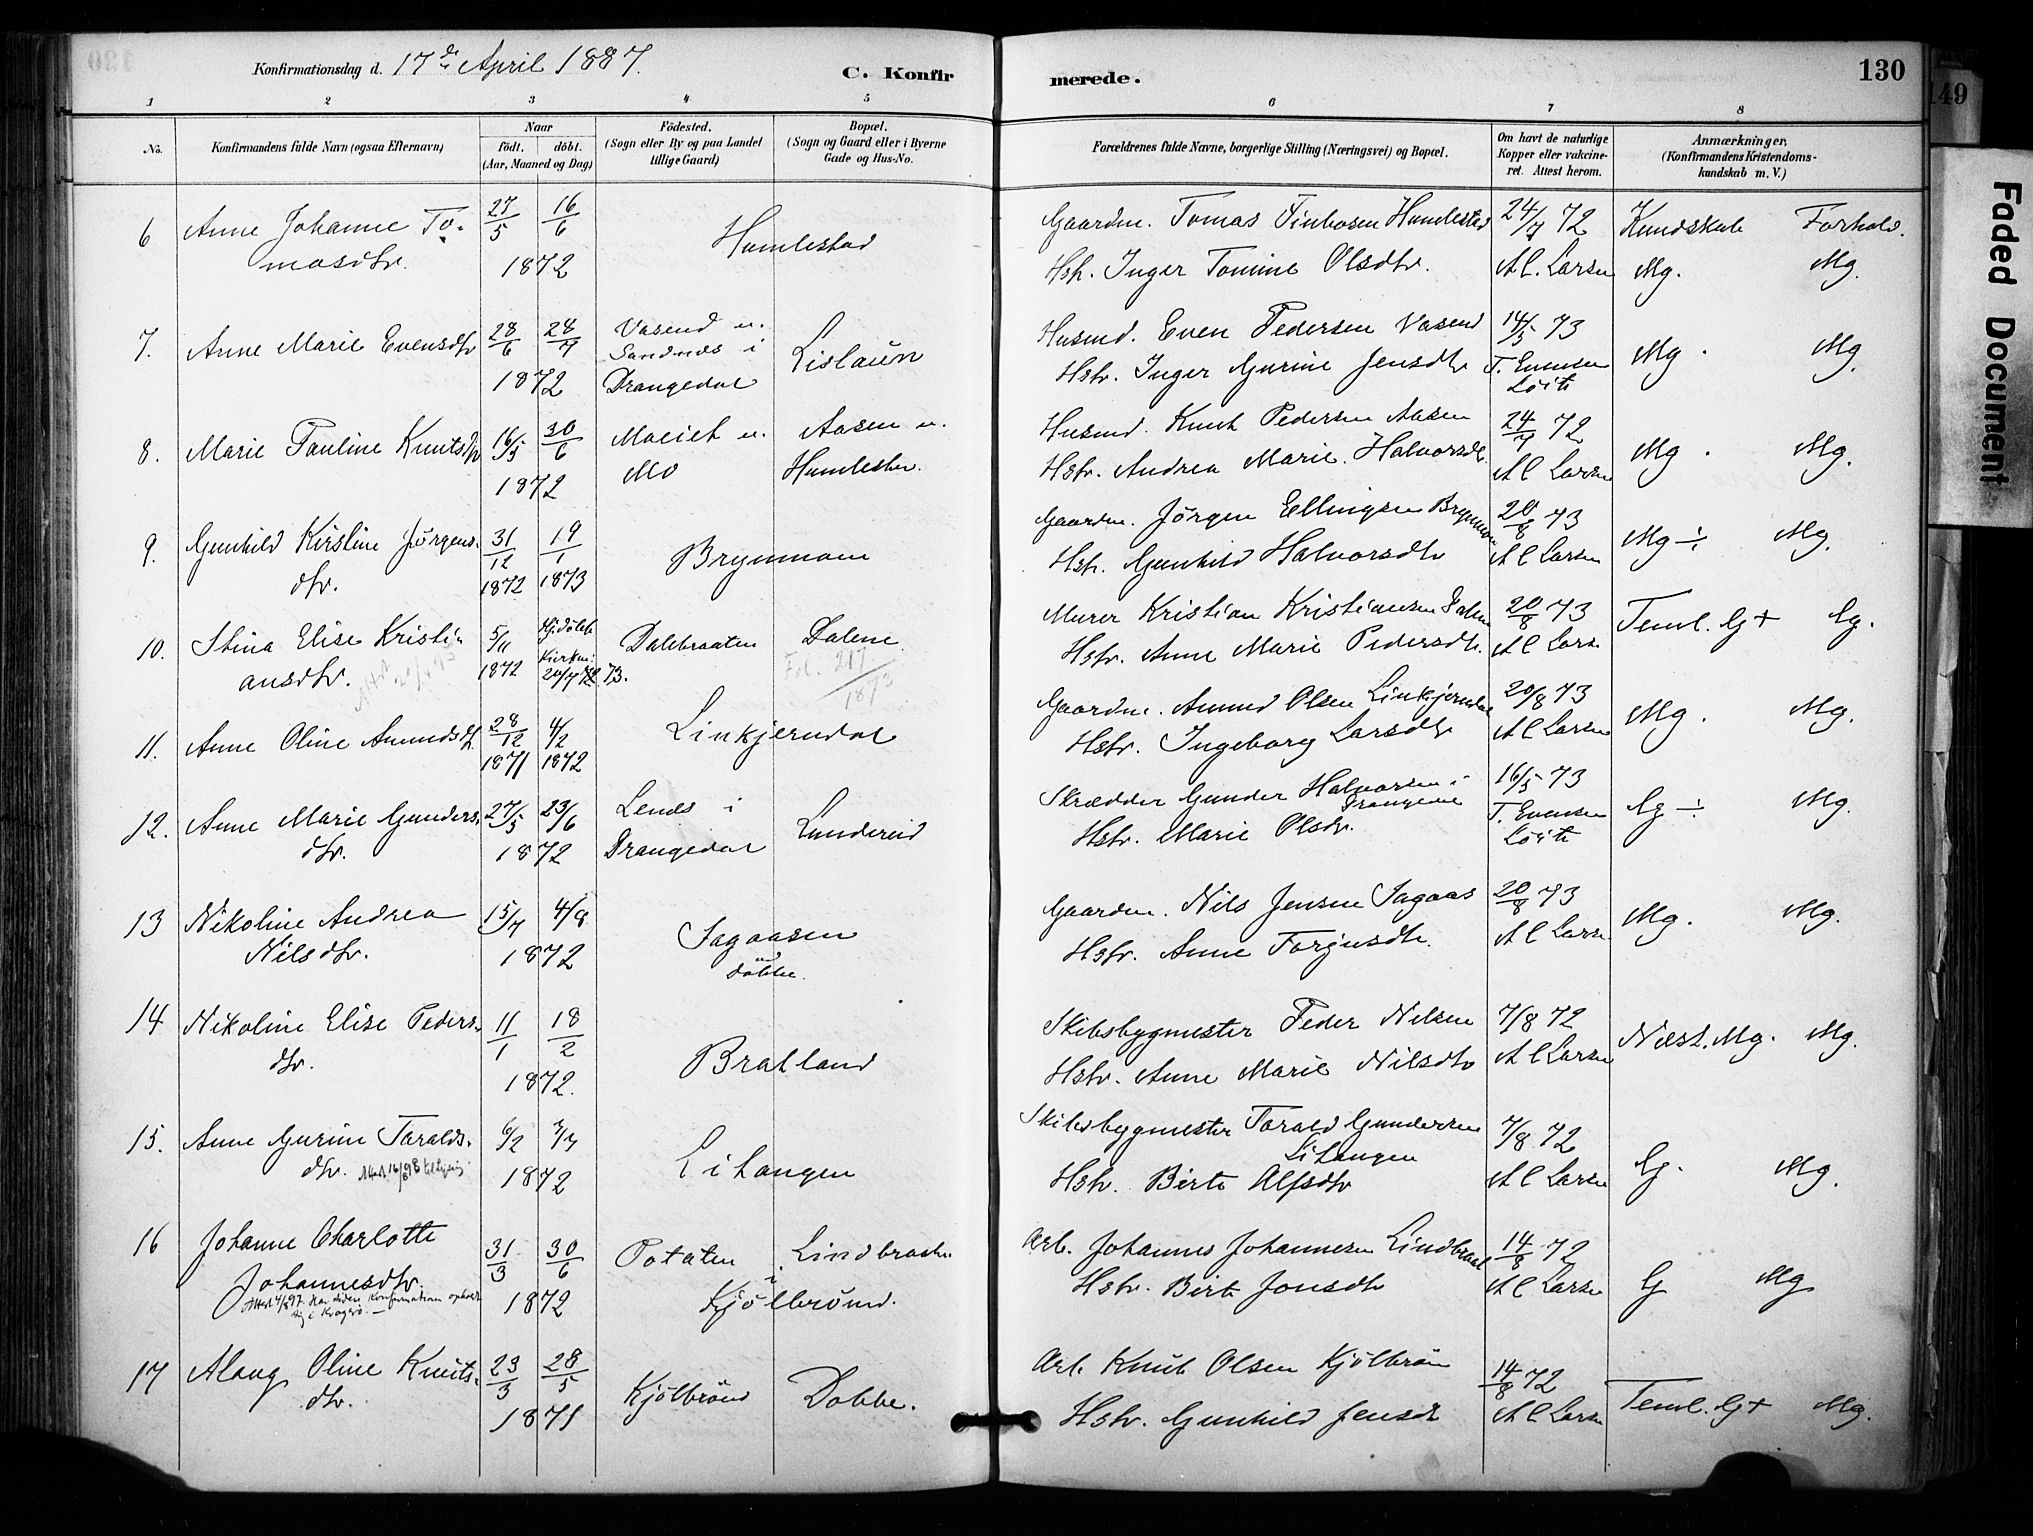 Konfirmationsdag d. 17de April 1887.
C. Konfirmerede.
130
149
Faded Document
1 2 3 4 5 6 7 8
No.
Konfirmandens fulde Navn (ogsaa Efternavn)
Naar
födt. döbt.
(Aar, Maaned og Dag)
Födested.
(Sogn eller By og paa Landet
tillige Gaard)
Bopæl.
(Sogn og Gaard eller i Byerne
Gade og Hus-No.
Forældrenes fulde Navne, borgerlige Stilling (Næringsvei) og Bopæl.
Om havt de naturlige
Kopper eller vakcine-
ret. Attest herom.
Anmærkninger.
(Konfirmandens Kristendoms-
kundskab m. V.)
6 Anne Johanne To- 27/5 16/6 Humlestad Gaardm. Tomas Finbosen Humlestad 24/7 72 Kundskab Forhold.
masdtr. 1872 Hstr. Inger Tomine Olsdtr. A C. Larsen Mg. Mg.
7. Anne Marie Evensdtr 28/6 28/7 Vasend u. Lislaün Husmd. Even Pedersen Vasend 14/5 73 Mg. Mg.
Sandnes i
1872 Drangedal Hstr. Inger Gurine Jensdtr T. Evensen
Löite
8. Marie Pauline Knutsdtr 16/5 30/6 Moeiet u. Aasen u. Husmd. Knut Pedersen Aasen 24/7 72 Mg. Mg.
1872 Mo Humlestad. Hstr. Andrea Marie Halvorsdtr. A C Larsen
9. Gunhild Kirstine Jörgens- 31/12 19/1 Brynmoen Gaardm. Jörgen Ellingsen Brynmoen 20/8 73 Mg ÷ Mg.
dtr. 1872 1873 Hstr. Gunhild Halvorsdtr A C Larsen
10. Stina Elise Kristi- 5/11 Hjdöbt Dalebraaten Dalene. Murer Kristian Kristiansen Dalen 20/8 73 Teml. G+ G.
ansdtr. 1872 Hstr. Anne Marie Pedersdtr. A C Larsen
11. Anne Oline Amundsdtr 28/12 4/2 Linkjerndal Gaardm. Amund Olsen Linkjerndal 20/8 73 Mg. Mg.
1871 1872 Hstr. Ingeborg Larsdtr A C Larsen
12. Anne Marie Gunders- 27/5 23/6 Lends i Lundereid Skrædder Gunder Halvorsen i 16/5 73 G ÷ Mg.
Drangedal
dtr. 1872 Drangedal Hstr. Marie Olsdtr. T. Evensen
Löite
13 Nikoline Andrea 15/7 4/8 Sagaasen Gaardm. Nils Jensen Sagaas 20/8 73 Mg. Mg.
Nilsdtr. 1872 und. Dobbe. Hstr. Anne Torjusdtr. A C Larsen
14 Nikoline Elise Peders- 11/1 18/2 Bratland Skibsbygmester Peder Nilsen 7/8 72 Næst. Mg. Mg.
dtr. 1872. Hstr. Anne Marie Nilsdtr A C Larsen
15. Anne Gurine Taralds- 6/2 7/7 Litangen Skibsbygmester Tarald Gundersen 7/8 72 G. Mg.
Litangen
dtr. 1872 Hstr. Birte Alfsdtr A C Larsen
16 Johanne Charlotte 31/3 30/6 Potäten Lindbraaten Arb. Johannes Johannesen Lindbraat 14/8 72 G Mg
Johannesdtr. 1872 i Kjölbrönd. Hstr. Birte Jonsdtr A C Larsen
Attest 4/5 97. Har siden Konfirmation opholdt
sig i Kragerö.
17 Alaug Oline Knuts- 23/3 28/5 Kjölbrönd Dobbe. Arb. Knut Olsen Kjölbrön 14/8 72 Teml. G+ Mg.
dtr. 1871 Hstr. Gunhild Jensdtr A C Larsen